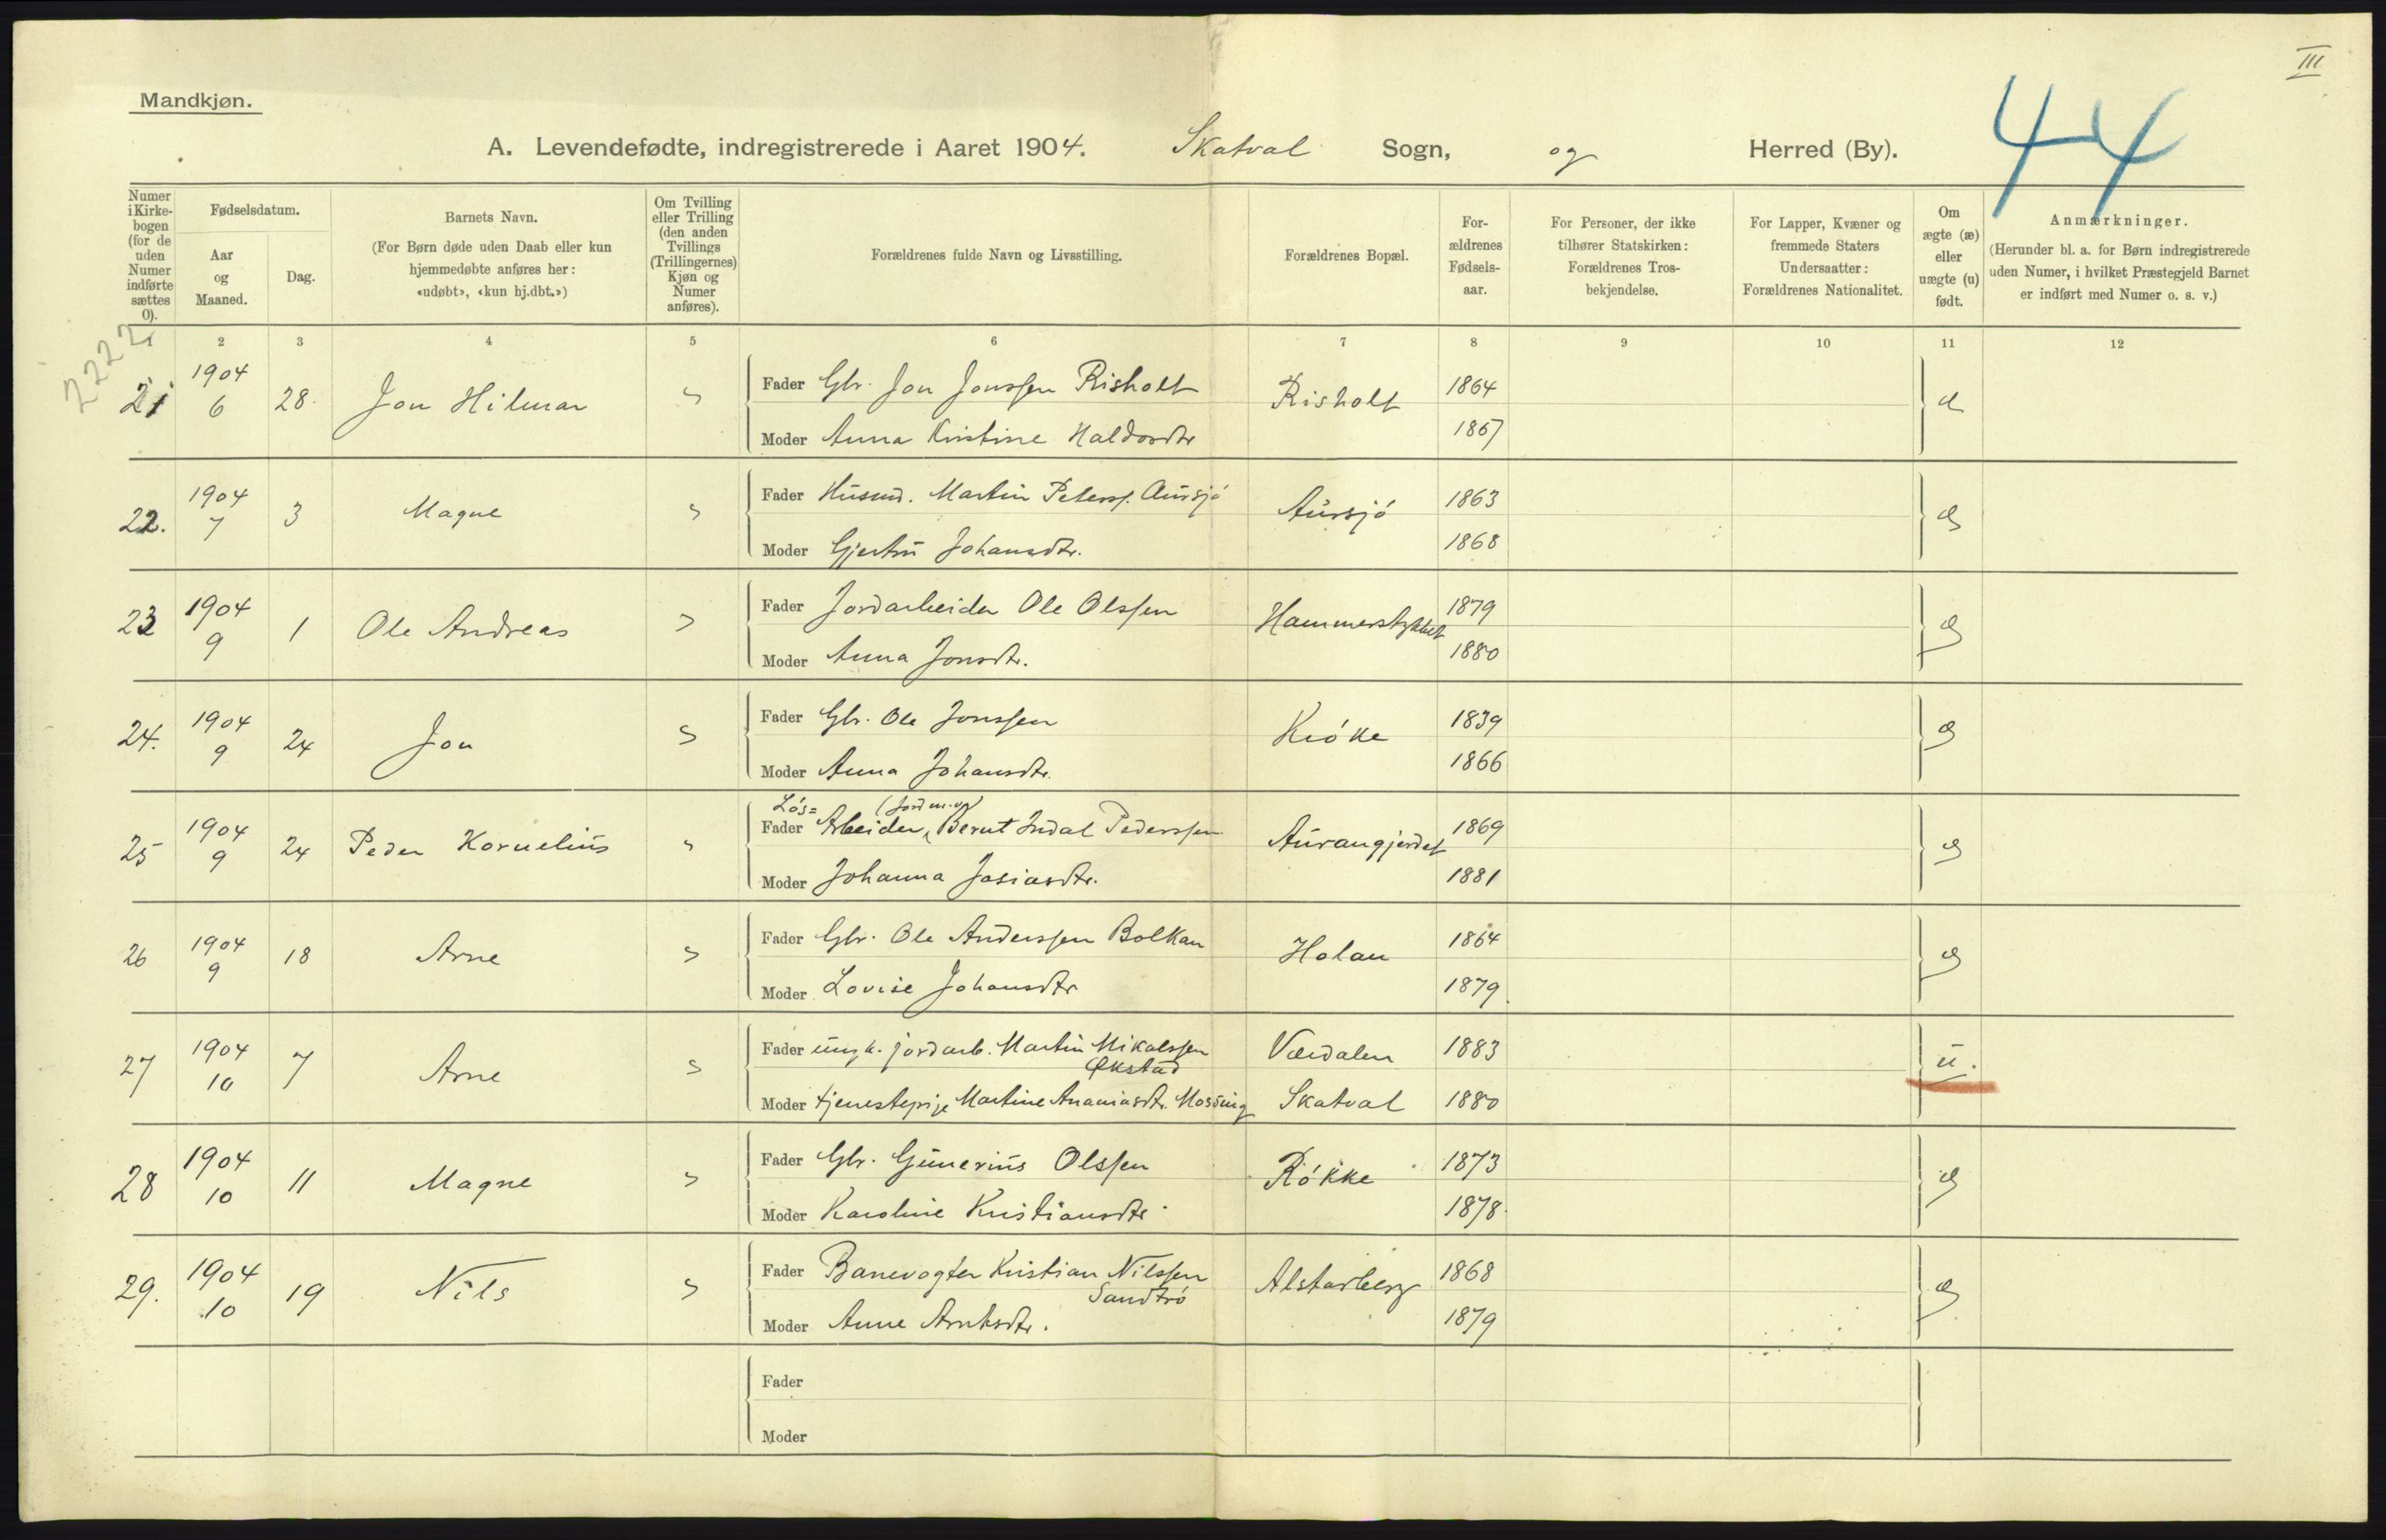 III
Mandkjøn.
44
A. Levendefødte, indregistrerede i Aaret 1904. Skatval Sogn, og Herred (By).
Numer i Kirke-bogen (for de uden Numer indførte sættes 0).
Fødselsdatum.
Aar og Maaned.
Dag.
Barnets Navn.
(For Børn døde uden Daab eller kun hjemmedøbte anføres her: «udøbt», «kun hj.dbt.»)
Om Tvilling eller Trilling (den anden Tvillings (Trillingernes) Kjøn og Numer anføres).
Forældrenes fulde Navn og Livsstilling.
Forældrenes Bopæl.
For-ældrenes Fødsels-aar.
For Personer, der ikke tilhører Statskirken: Forældrenes Tros-bekjendelse.
For Lapper, Kvæner og fremmede Staters Undersaatter: Forældrenes Nationalitet.
Om ægte (æ) eller uægte (u) født.
Anmærkninger.
(Herunder bl. a. for Børn indregistrerede uden Numer, i hvilket Præstegjeld Barnet er indført med Numer o. s. v.)
1 2 3 4 5 6 7 8 9 10 11 12
2222
21 1904 6 28. Jon Hilmar " Fader Gbr. Jon Jonssen Risholt Risholt 1864 æ
Moder Anna Kristine Haldorsdtr 1867
22. 1904 7 3 Magne " Fader Husmd. Martin Peterss. Aursjó Aursjó 1863 æ
Moder Gjertru Johansdtr. 1868
23 1904 9 1 Ole Andreas " Fader Jordarbeider Ole Olssen Hammerstykket 1879 æ
Moder Anna Jonsdtr. 1880
24. 1904 9 24 Jon " Fader Gbr. Ole Jonssen Króke 1839 æ
Moder Anna Johansdtr. 1866
25 1904 9 24 Peder Kornelius " Lós= Fader Arbeider, Bernt Indal Pederssen Aurangjerdet 1869 æ
Moder Johanna Josiasdtr. 1881
26 1904 9 18 Arne " Fader Gbr. Ole Anderssen Bolkan Holan 1864 æ
Moder Lovise Johansdtr 1879
27 1904 10 7 Arne " Fader ungk. jordarb. Martin Mikalssen Økstad Værdalen 1883 u.
Moder tjenestepige Martine Ananiasdtr. Mossing Skatval 1880
28 1904 10 11 Magne " Fader Gbr. Gunerius Olssen Rókke 1873 æ
Moder Karoline Kristiansdtr 1878
29. 1904 10 19 Nils " Fader Banevogter Kristian Nilssen Sandtró Alstarberg 1868 æ
Moder Anne Arntsdtr. 1879
Fader
Moder